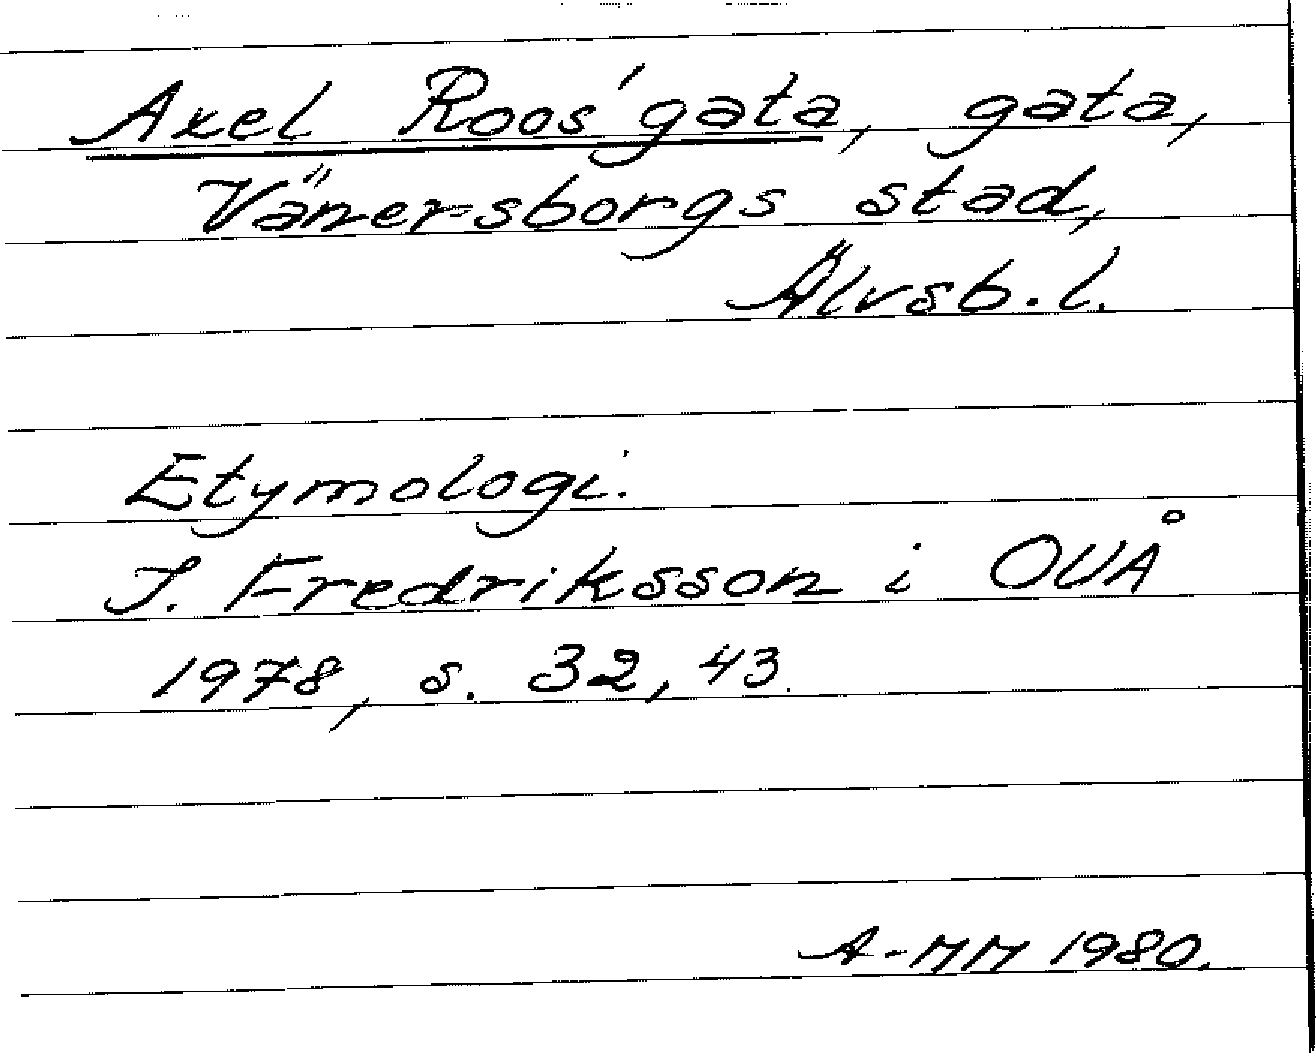 Axel Roos' gata, gata,
Vänersborgs stad,
Älvsb. l.
Etymologi.
I. Fredriksson i OUÅ
1978, s. 32, 43.
A-MM 1980.